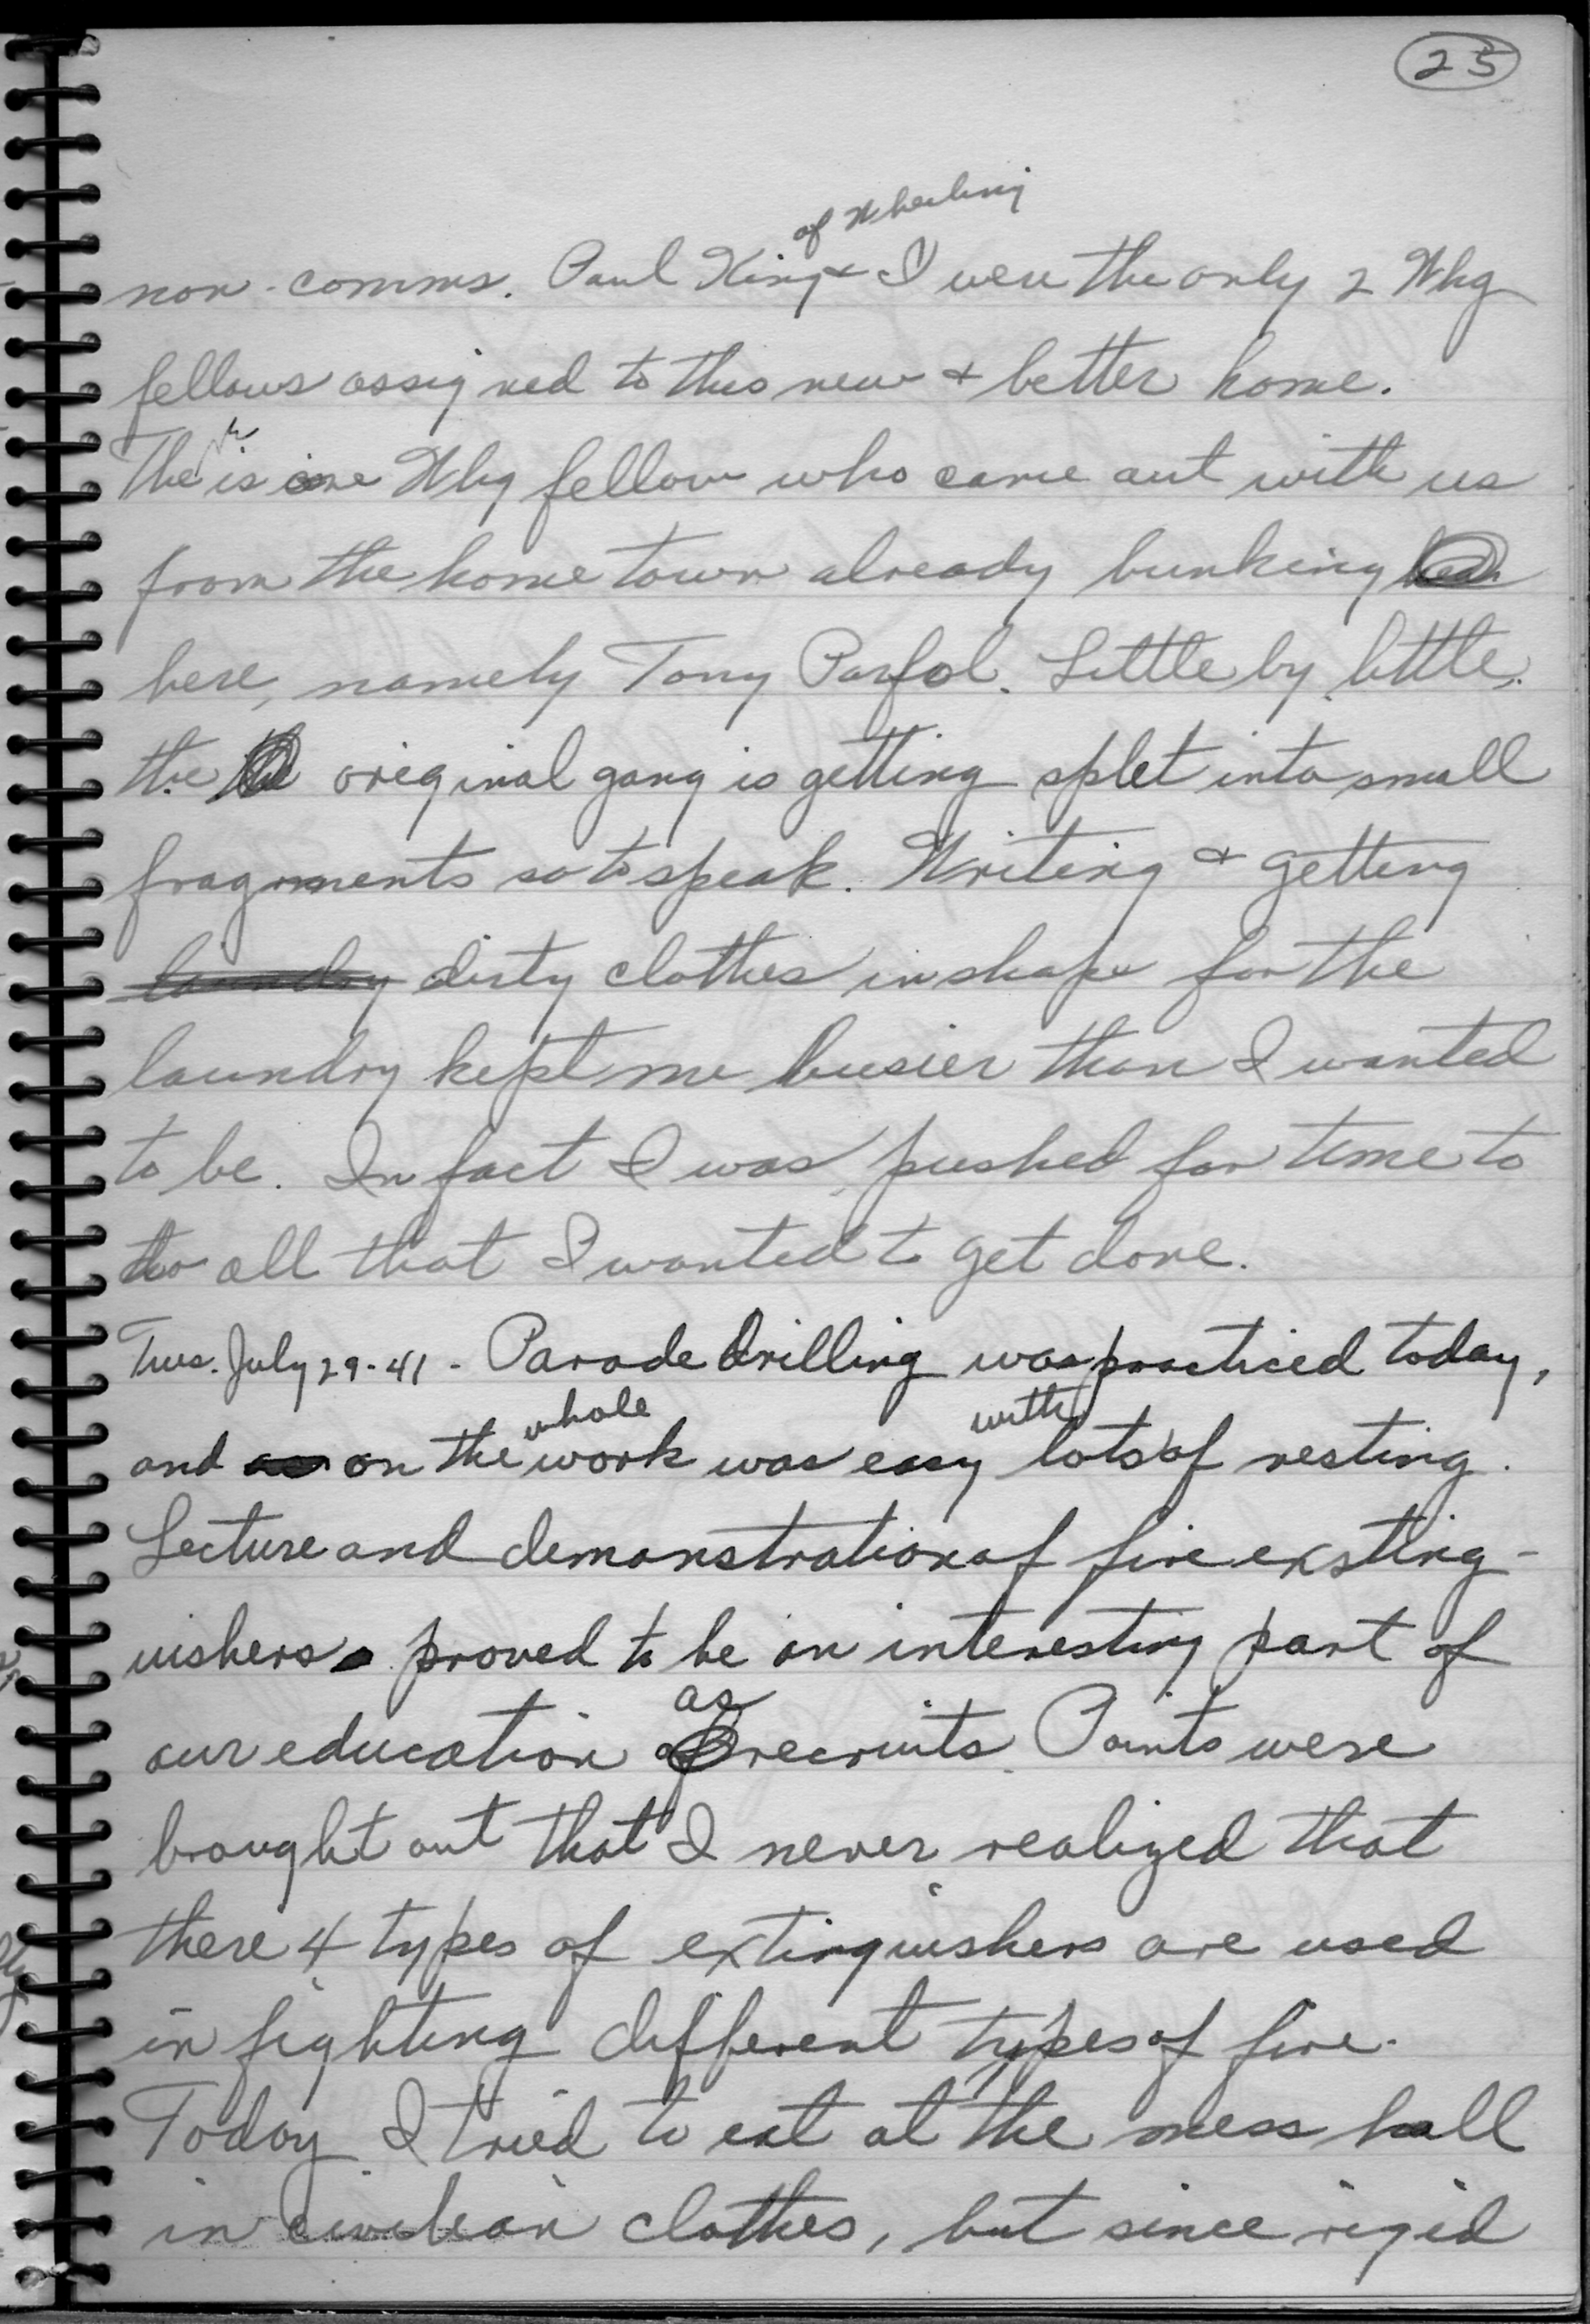 25
of Wheeling
non-comms. Paul King & I were the only 2 Whg
fellows assigned to this new & better home.
The is one Whg fellow who came out with us
from the home town already bunking
here, namely Tony Parfol. Little by little,
the original gang is getting split into small
fragments so to speak. Writing & getting
laundry dirty clothes in shape for the
laundry kept me busier than I wanted
to be. In fact I was pushed for time to
do all that I wanted to get done.
Tues. July 29-41 - Parade drilling was practiced today,
whole with
and on the work was easy lots of resting.
Lecture and demonstration of fire exsting-
uishers proved to be an interesting part of
as
our education of recruits. Points were
brought out that I never realized that
there 4 types of extinguishers are used
in fighting different types of fire.
Today I tried to eat at the mess hall
in civilean clothes, but since rigid